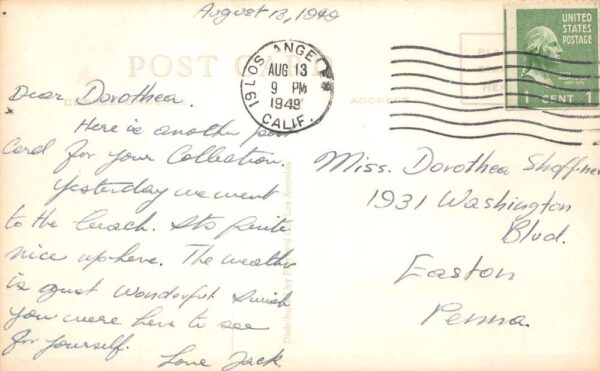 August 13, 1949
POST CARD
LOS ANGELES
AUG 13
9 PM
1949
CALIF.
19
UNITED
STATES
POSTAGE
1 CENT 1
ADDRESS
Dear Dorothea.
Here is another post
Card for your Collection.
Yesterday we went
to the beach. Its quite
nice up here. The weather
is just wonderful I wish
you were here to see
for yourself.
Love Jack
Miss. Dorothea
1931 Washington
Blvd.
Easton
Penna.
Distributed by
Los Angeles